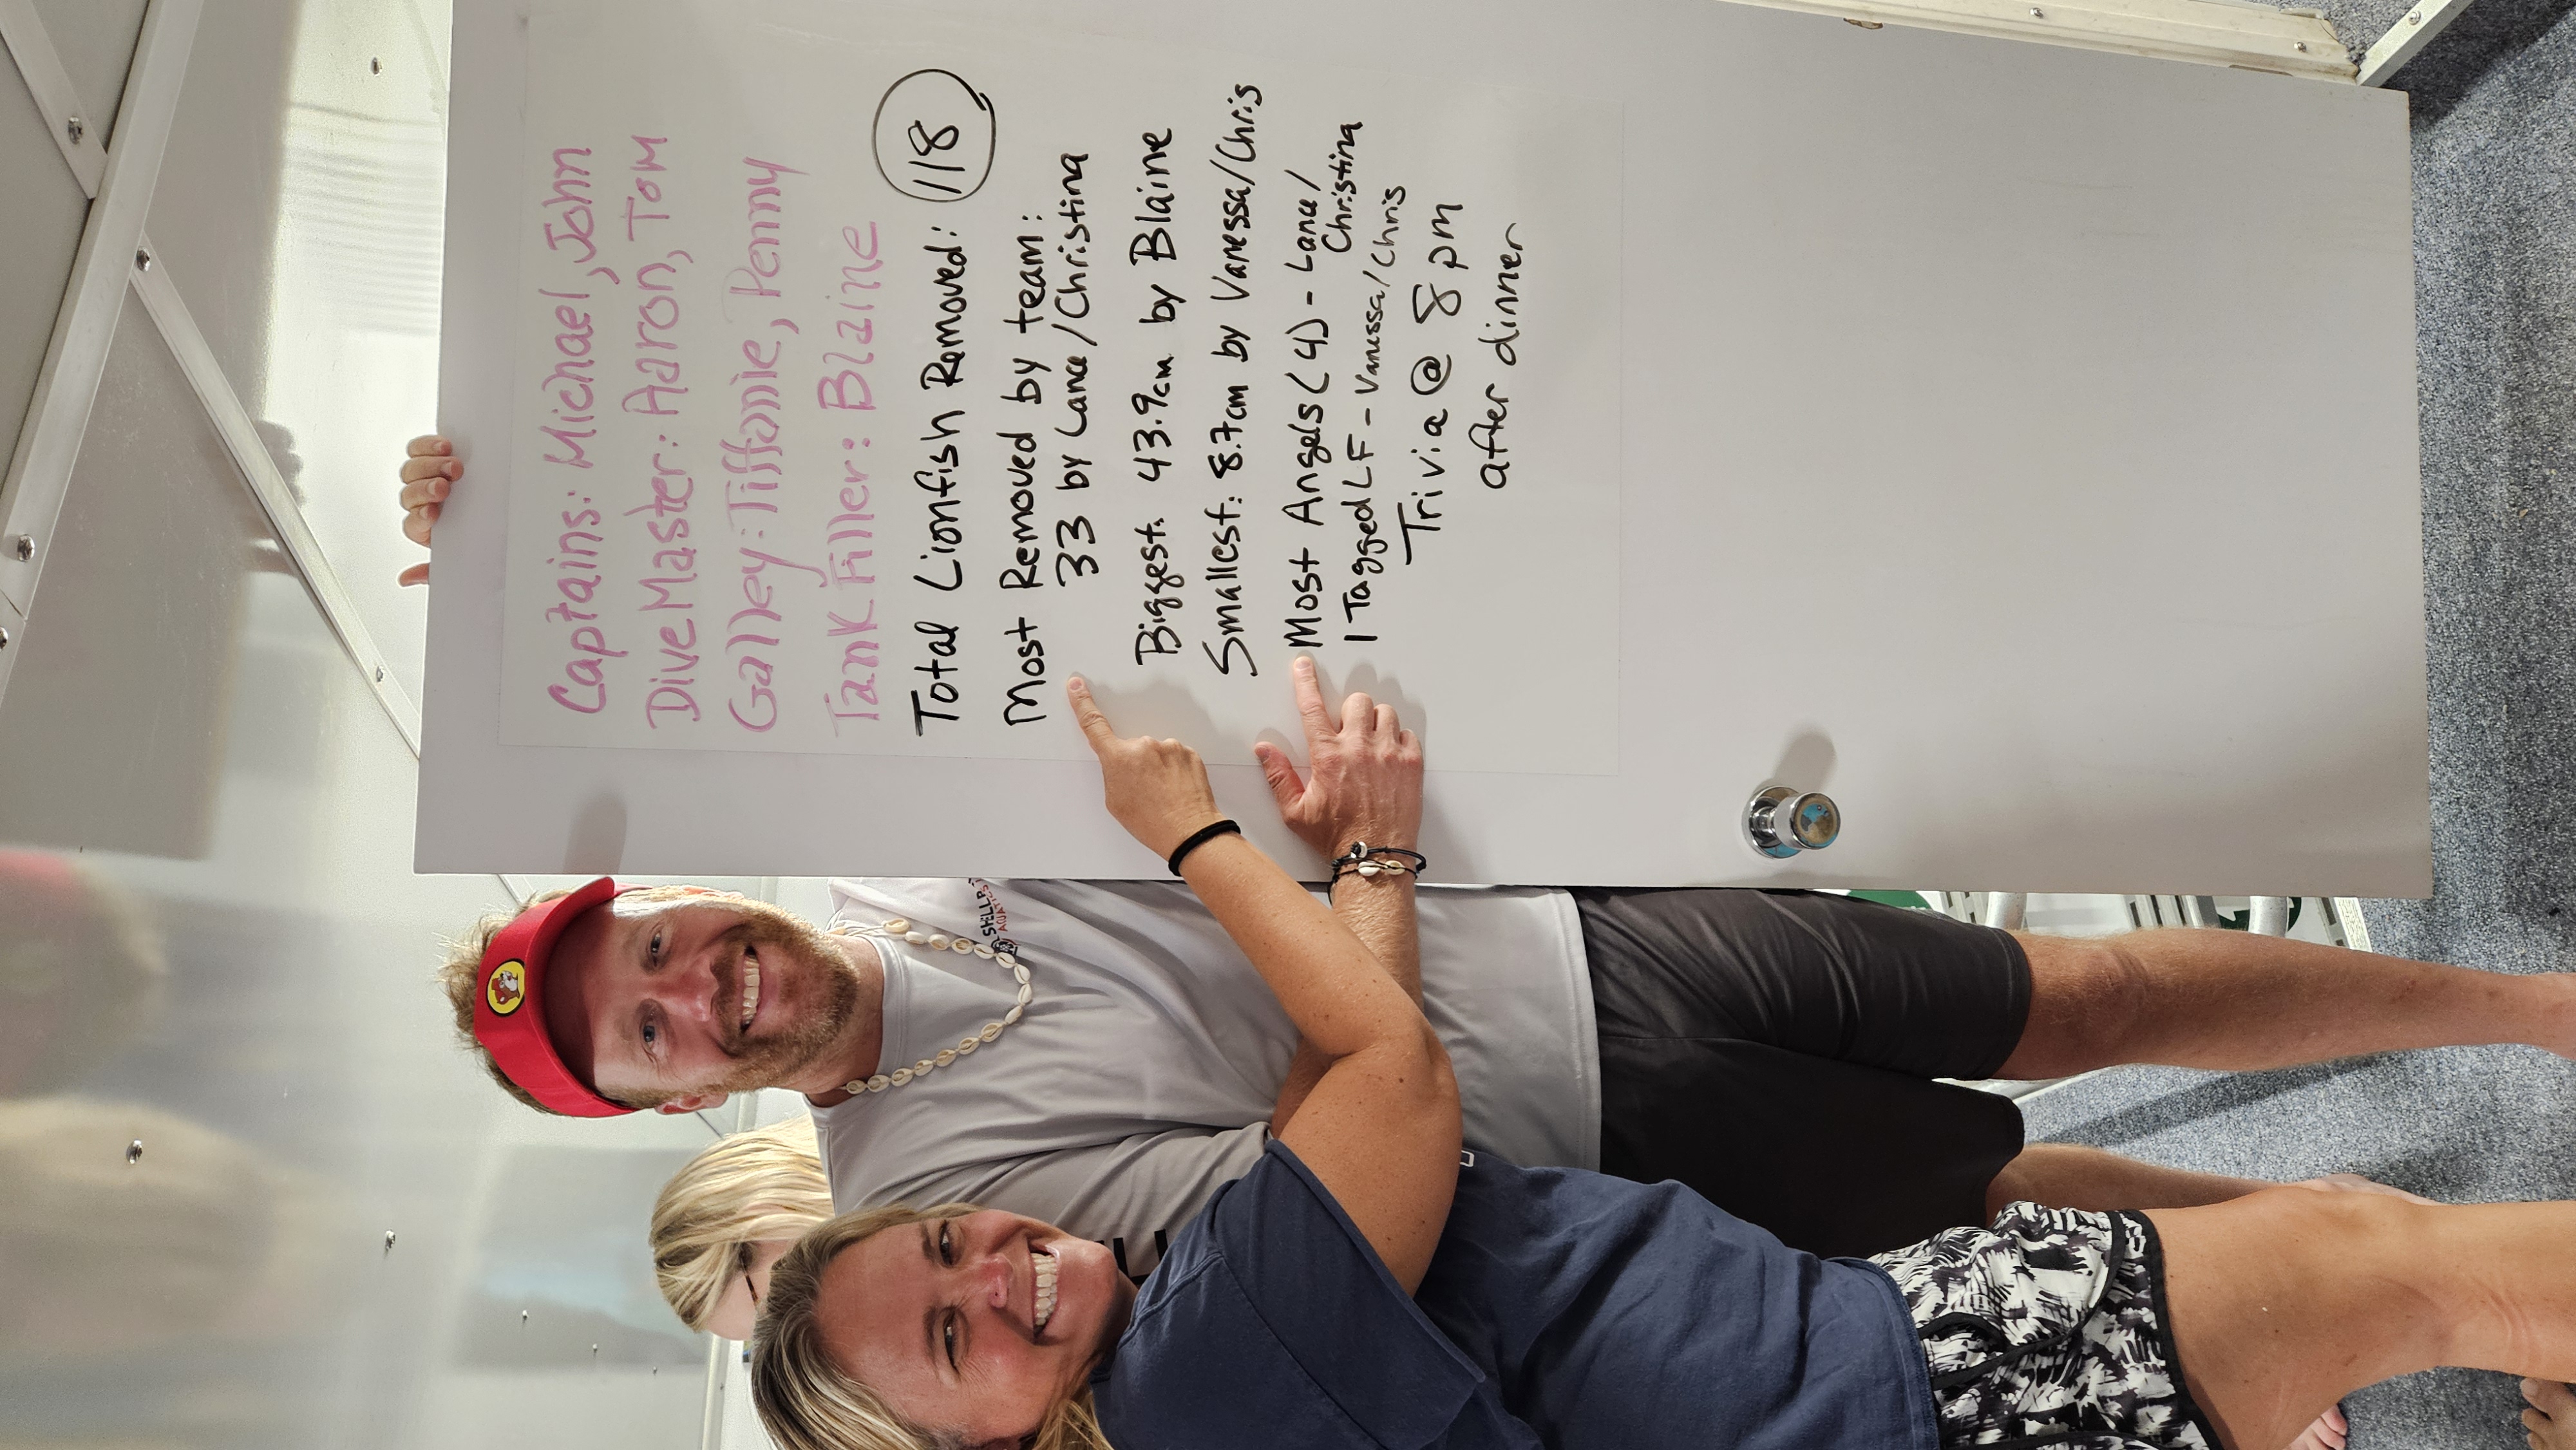 Captains: Michael, John
DiveMaster: Aaron, Tom
Galley: Tiffanie, Penny
Tank Filler: Blaine
Total Lionfish Removed: 118
Most Removed by team:
33 by Lance/Christina
Biggest: 43.9cm by Blaine
Smallest: 8.7cm by Vanessa/Chris
Most Angels (4) - Lance/
Christina
1 Tagged LF - Vanessa/Chris
Trivia @ 8 pm
after dinner